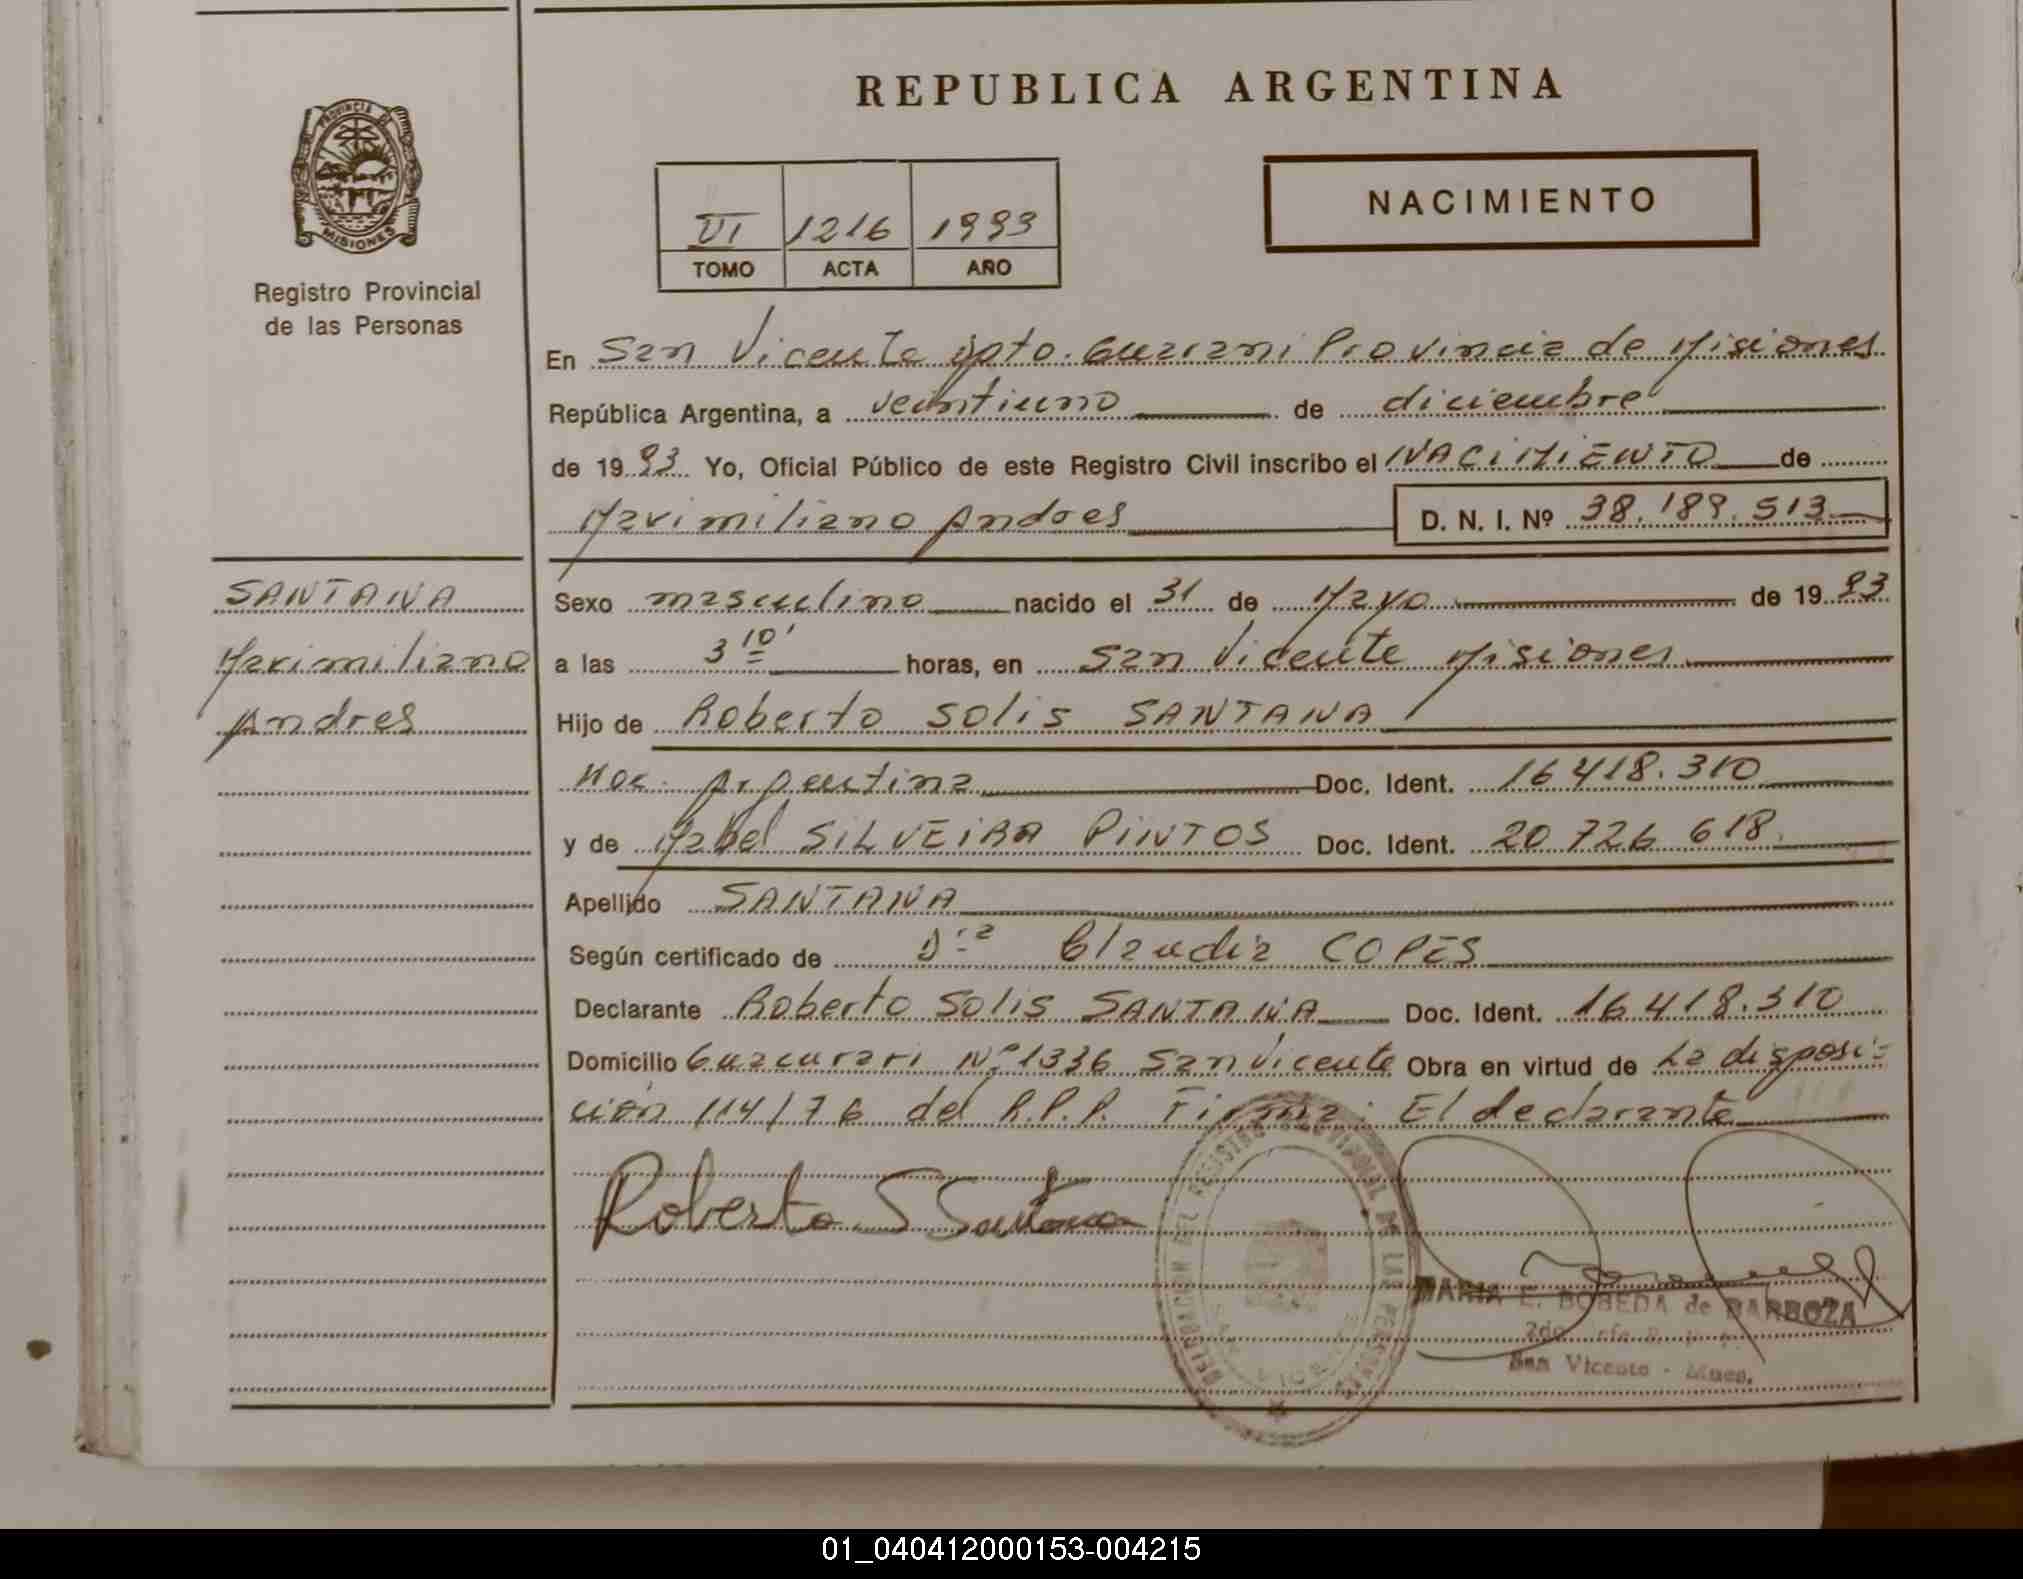 REPUBLICA ARGENTINA
PROVINCIA DE
MISIONES
Registro Provincial
de las Personas
NACIMIENTO
VI 1216 1993
TOMO ACTA AÑO
En San Vicente Dpto. Guarani Provincia de Misiones
República Argentina, a veintiuno de diciembre
de 1993 Yo, Oficial Público de este Registro Civil inscribo el NACIMIENTO de
Maximiliano Andres D. N. I. Nº 38.189.513
SANTANA
Maximiliano
Andres
Sexo masculino nacido el 31 de Mayo de 1993
a las 3 10' horas, en San Vicente Misiones
Hijo de Roberto Solis SANTANA
Nac. Argentina Doc. Ident. 16 418.310
y de Mabel SILVEIRA PINTOS Doc. Ident. 20 726 618.
Apellido SANTANA
Según certificado de Dra Claudia COPES
Declarante Roberto Solis SANTANA Doc. Ident. 16 418.310
Domicilio Guacurari Nº 1336 San Vicente Obra en virtud de La disposi-
ción 114/76 del R.P.P. Firma: El declarante
Roberto S Santana
DELEGACION DEL REGISTRO PROVINCIAL DE LAS PERSONAS
MARIA E. BOBEDA de BARBOZA
San Vicente - Mnes.
01_040412000153-004215